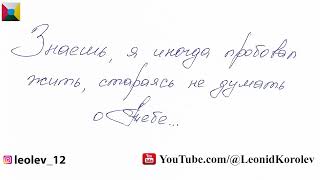 Знаешь, я иногда пробовал
жить, стараясь не думать
о тебе...
leolev_12
YouTube.com/@LeonidKorolev